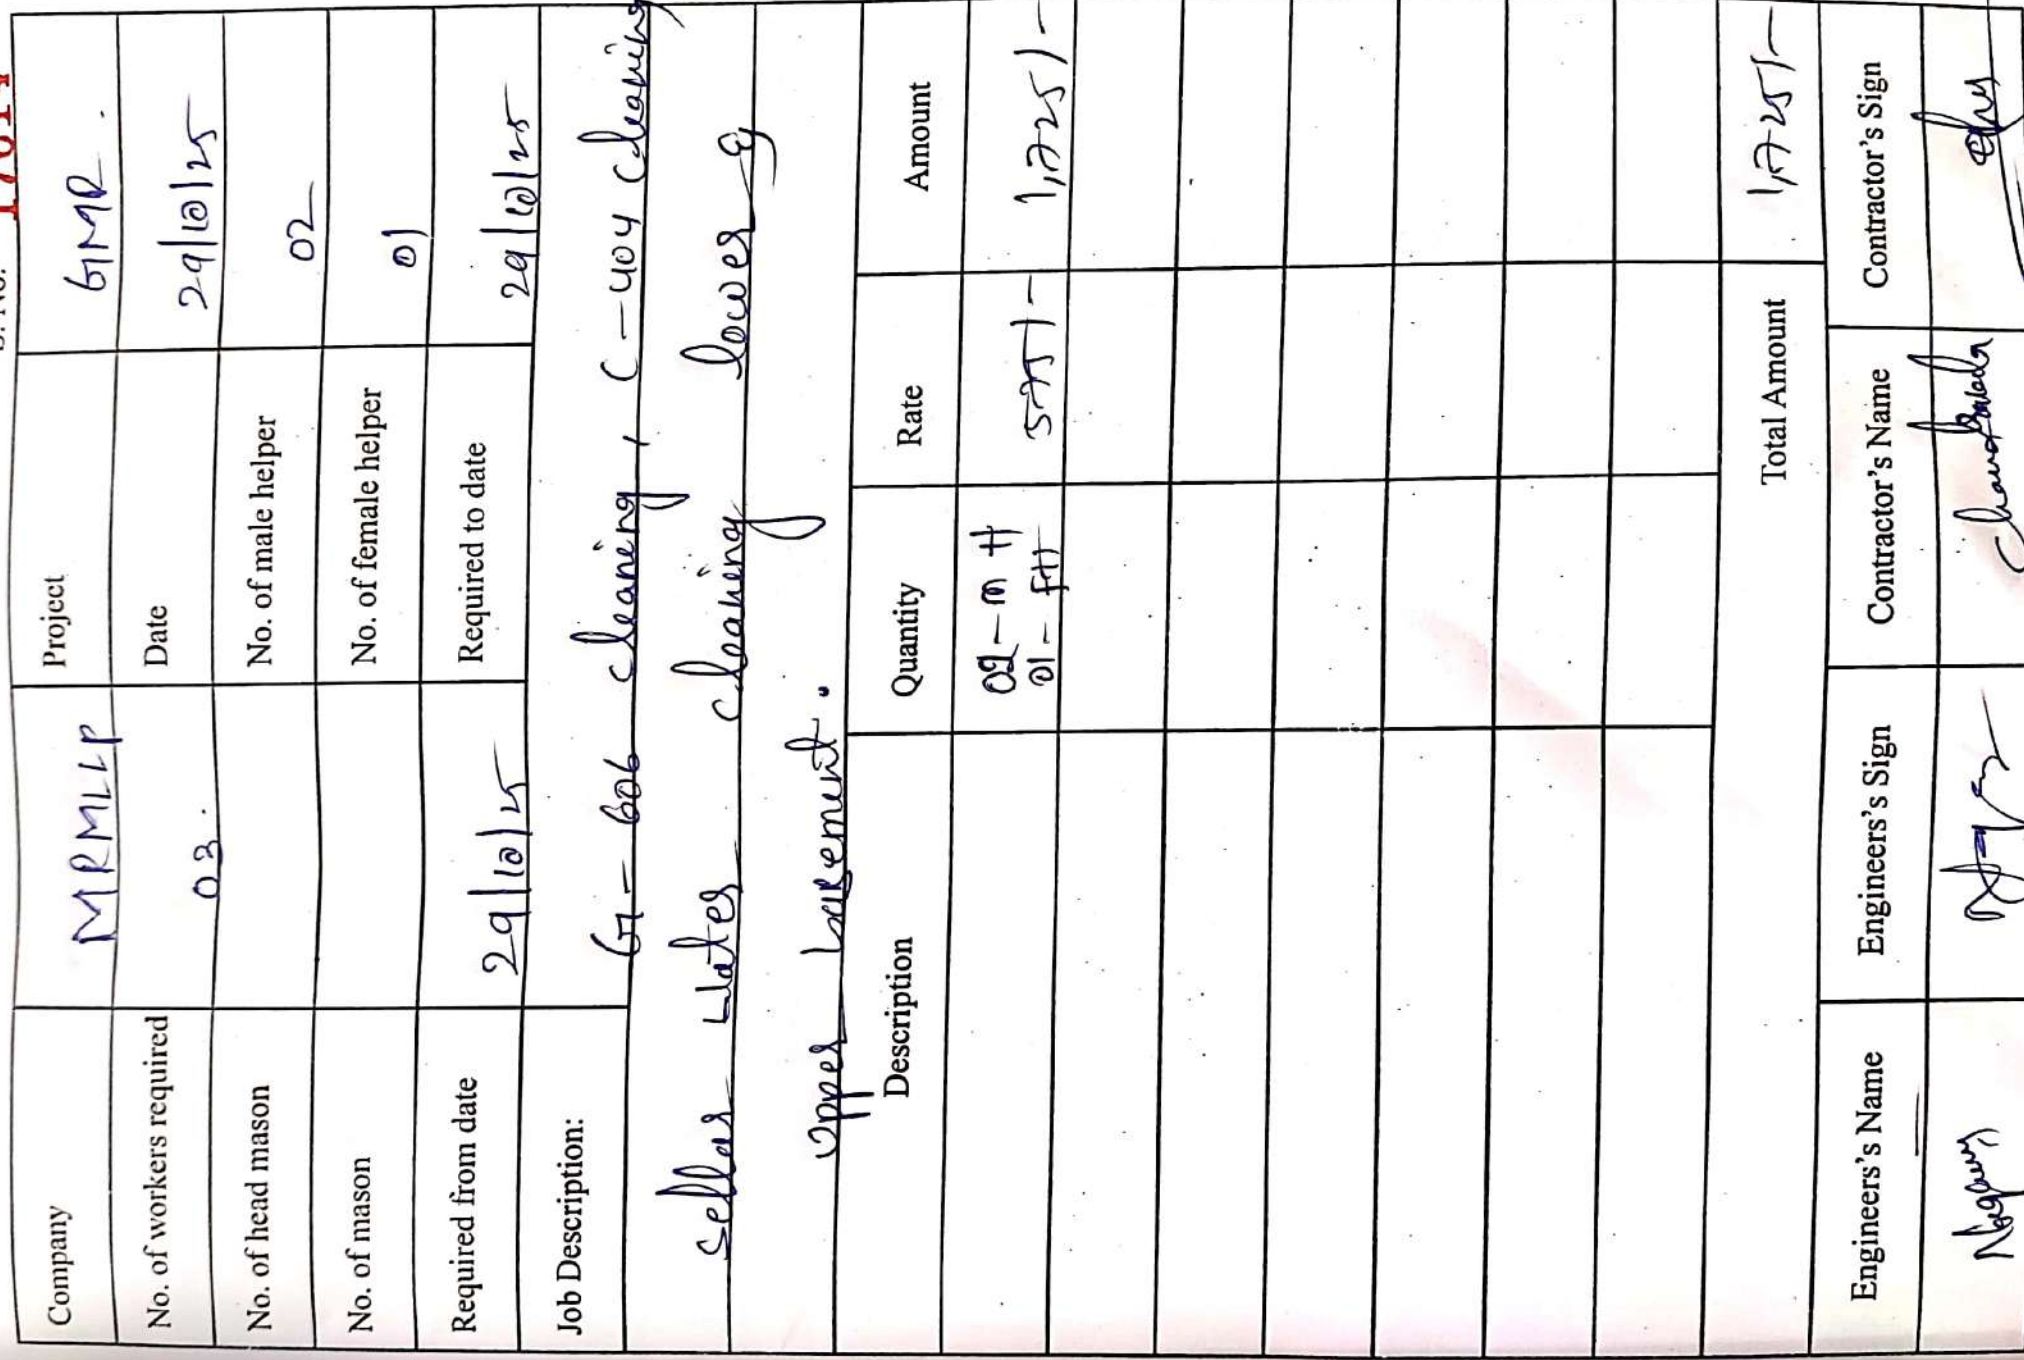 Sr. No.
Company MRMLLP Project GMR.
No. of workers required 03. Date 29/10/25
No. of head mason No. of male helper 02
No. of mason No. of female helper 01
Required from date 29/10/25 Required to date 29/10/25
Job Description: G-606 cleaning, C-404 cleaning
Sellar Water cleaning lower &
upper basement.
Description Quantity Rate Amount
02-MH
01-FH 575/- 1,725/-
Total Amount 1,725/-
Engineers's Name Engineers's Sign Contractor's Name Contractor's Sign